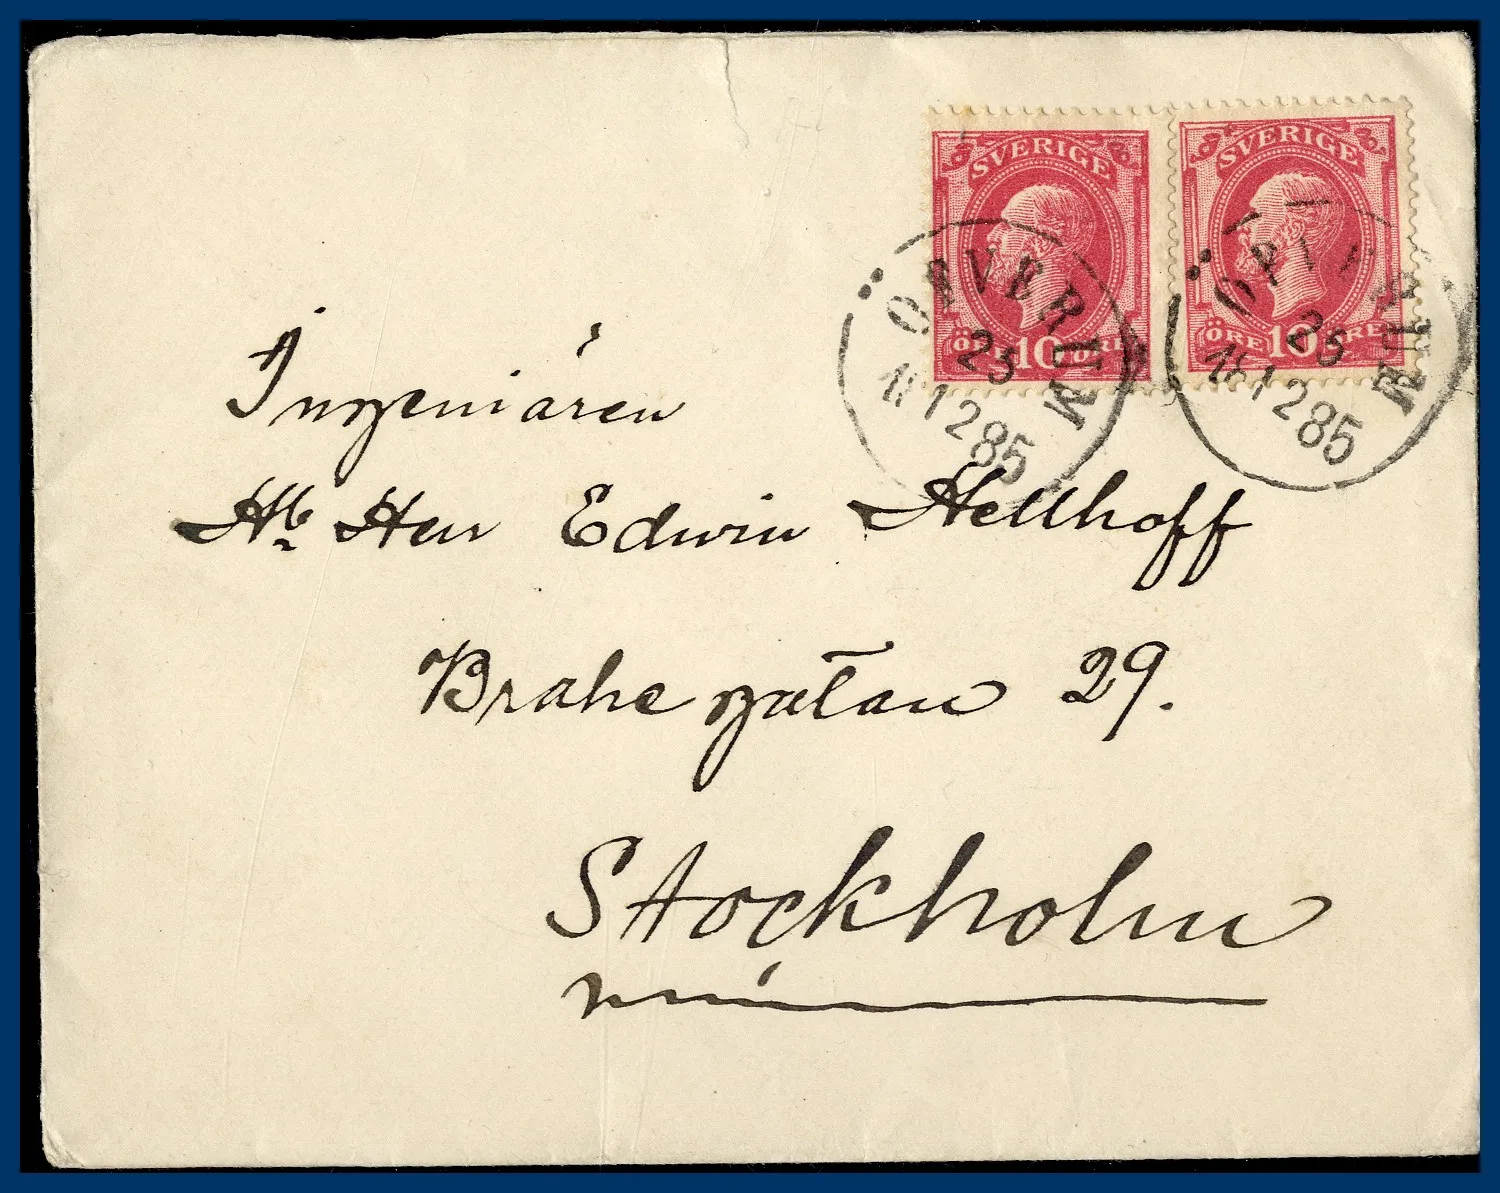 SVERIGE
ÖRE 10 ÖRE
SVERIGE
ÖRE 10 ÖRE
ÖSTVERUM
25
12 85
ÖSTVERUM
25
12 85
Ingeniören
Herr Edwin Hellhoff
Brahegatan 29.
Stockholm